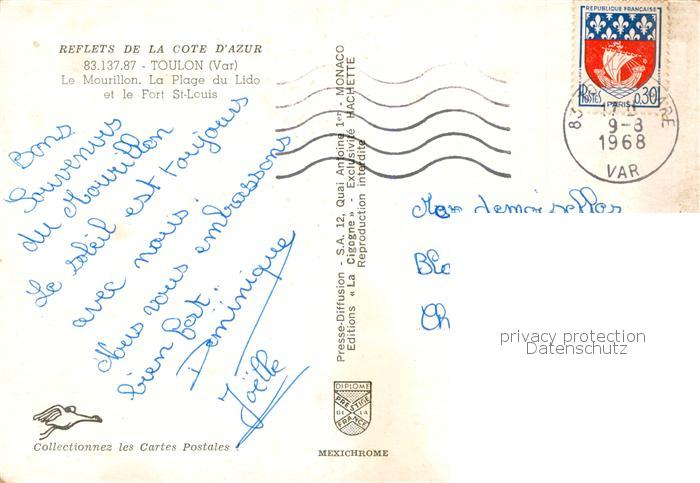 REFLETS DE LA COTE D'AZUR
83.137.87 - TOULON (Var)
Le Mourillon. La Plage du Lido
et le Fort St-Louis
Bons
Souvenirs
du Mourillon
Le soleil est toujours
avec nous.
Nous vous embrassons
bien fort.
Dominique
Joëlle
Collectionnez les Cartes Postales !
Presse-Diffusion - S.A. 12, Quai Antoine 1er, MONACO
Editions « La Cigogne » - Exclusivité HACHETTE
Reproduction interdite
DIPLOME
PRESTIGE
DE LA
FRANCE
MEXICHROME
REPUBLIQUE FRANÇAISE
POSTES
0,30
PARIS
83
9-8
1968
VAR
Mesdemoiselles
privacy protection
Datenschutz